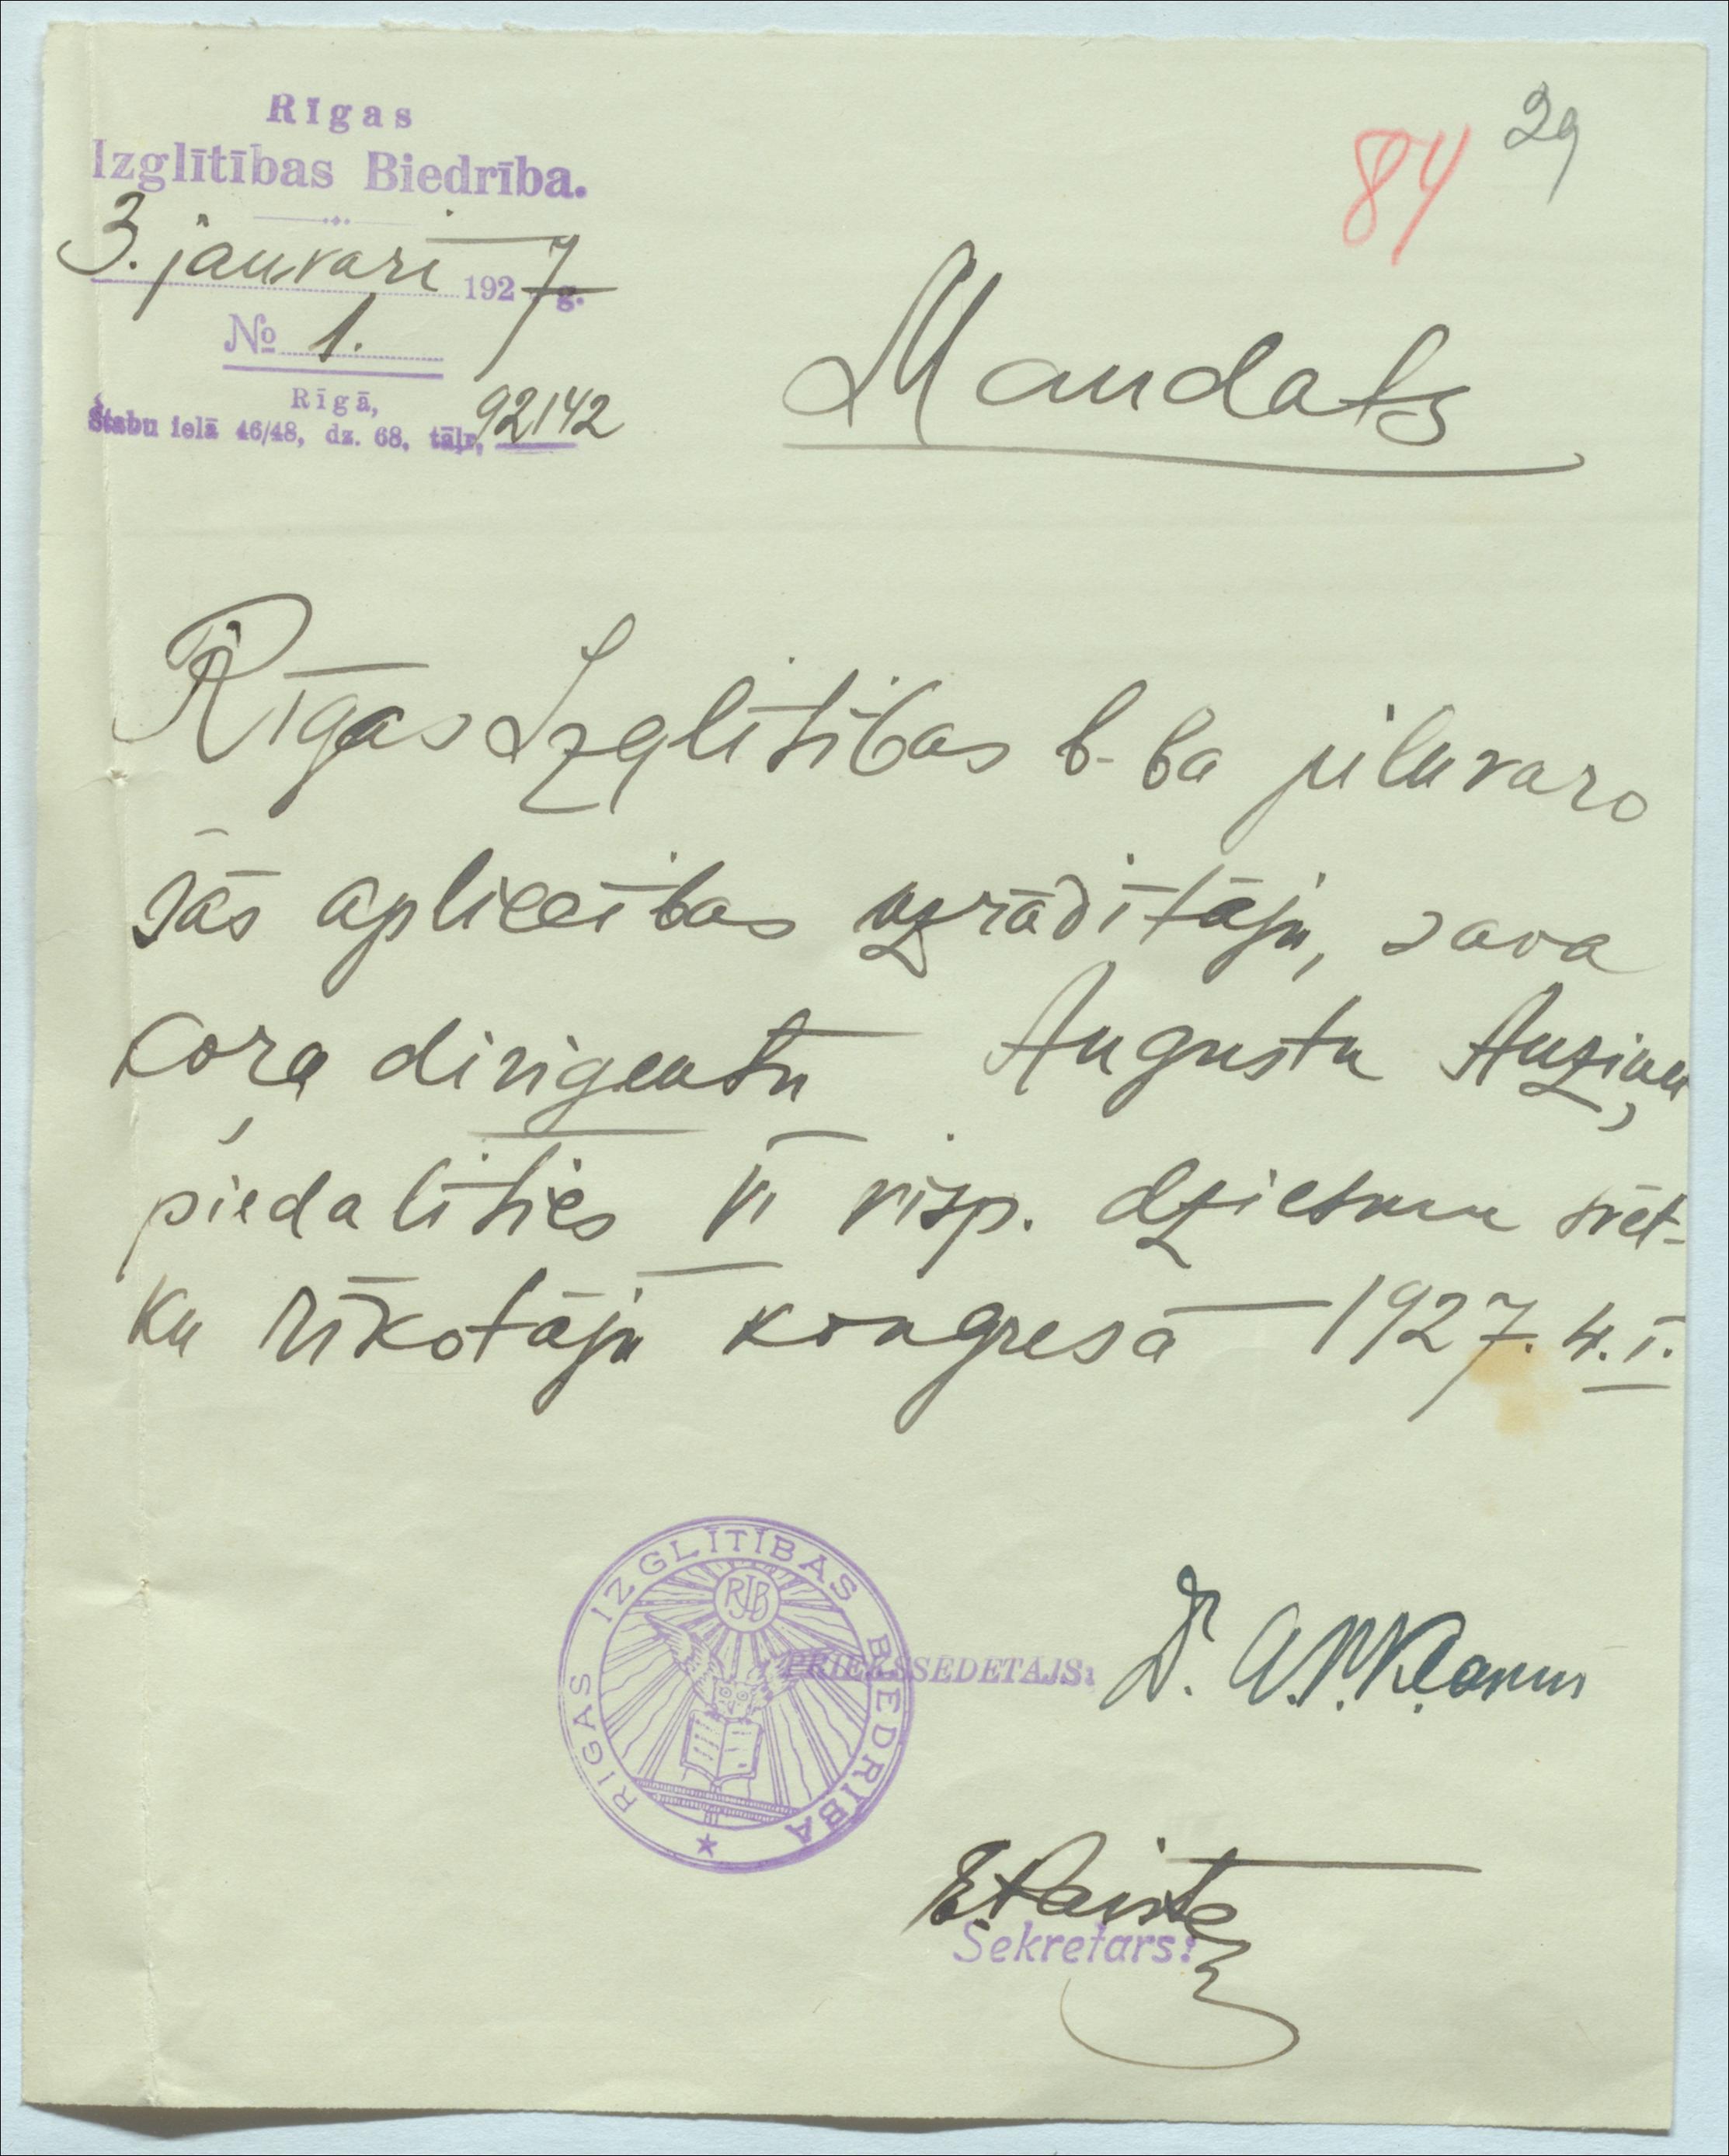 Rīgas
Izglītības Biedrība.
3. janvarī 1927 g.
№ 1.
Rīgā,
Stabu ielā 46/48, dz. 68, tāļr. 92142
84 29
Mandats
Rīgas Izglītības b-ba pilnvaro
šās apliecības uzrādītāju, sava
koŗa diriģentu Augustu Auziņu
piedalīties VI visp. dziesmu svēt-
ku rīkotāju kongresā 1927. 4. I.
RIGAS IZGLĪTĪBAS BIEDRĪBA
RJB
PRIEKŠSĒDETAJS:
Dr.
Sekretars: